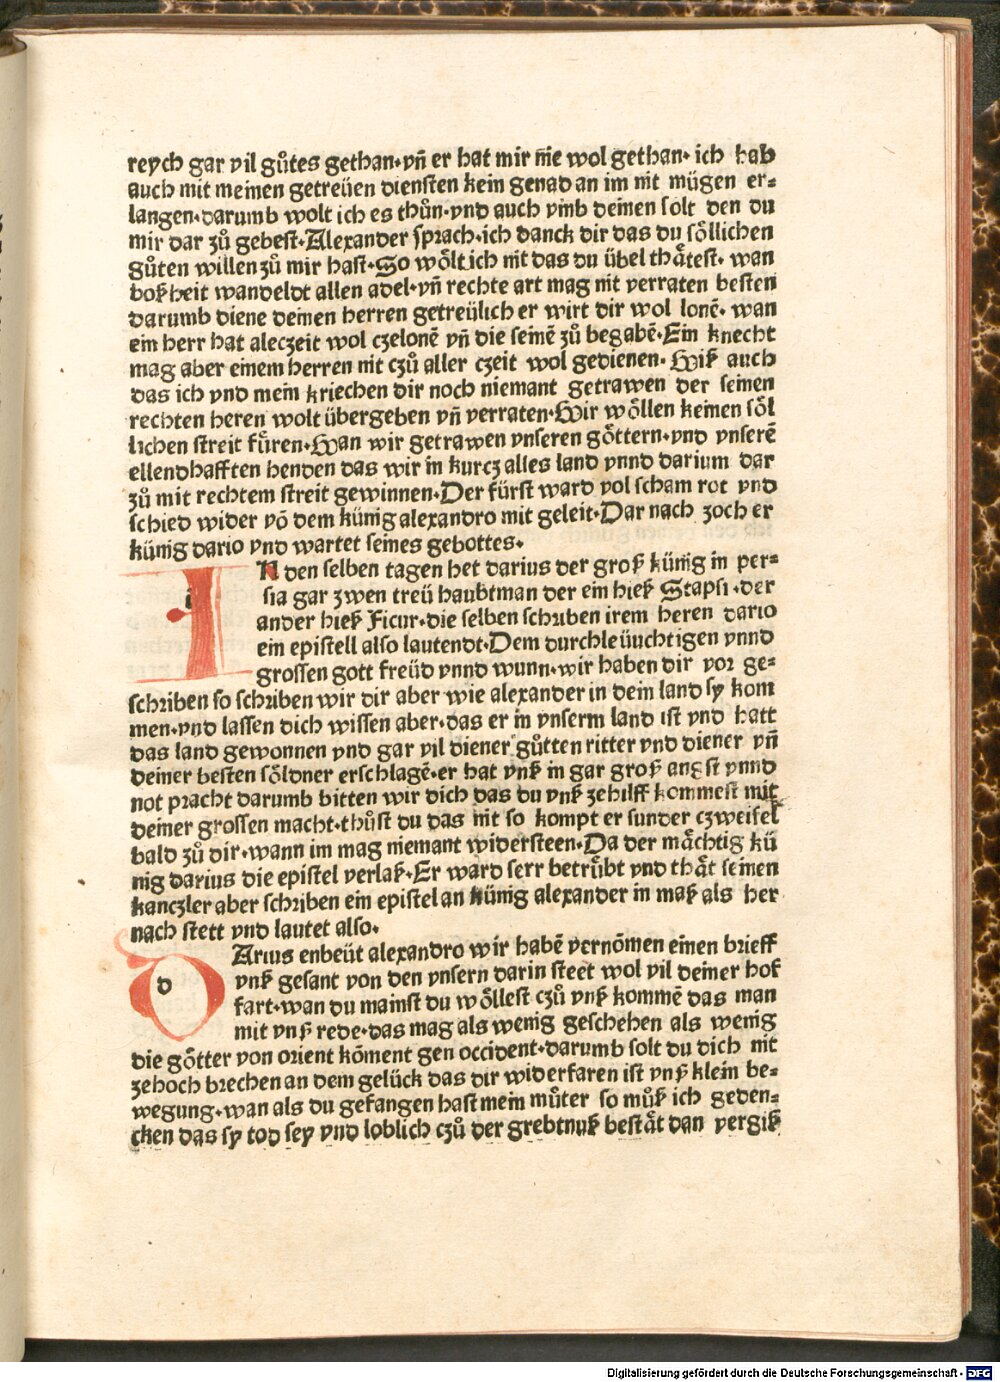 reych gar vil gůtes gethan·vñ er hat mir nie wol gethan· ich hab
auch mit meinen getreüen diensten kein genad an im nit mügen er⸗
langen·darumb wolt ich es thůn·vnd auch vmb deinen solt den du
mir dar zů gebest·Alexander sprach·ich danck dir das du sőllichen
gůten willen zů mir hast·So wőlt ich nit das du übel thåtest· wan
boßheit wandeldt allen adel·vñ rechte art mag nit verraten besten
darumb diene deinen herren getreülich er wirt dir wol lonē· wan
ein herr hat aleczeit wol czelonē vñ die seinē zů begabē·Ein knecht
mag aber einem herren nit czů aller czeit wol gedienen· Wiß auch
das ich vnd mein kriechen dir noch niemant getrawen der seinen
rechten heren wolt übergeben vñ verraten·Wir wőllen keinen sől
lichen streit fűren·Wan wir getrawen vnseren gőttern·vnd vnserē
ellendhafften henden das wir in kurcz alles land vnnd darium dar
zů mit rechtem streit gewinnen·Der fürst ward vol scham rot vnd
schied wider vō dem künig alexandro mit geleit·Dar nach zoch er
künig dario vnd wartet seines gebottes·
i N den selben tagen het darius der groß künig in per⸗
sia gar zwen treü haubtman der ein hieß Stapsi ·der
ander hieß Ficur·die selben schriben irem heren dario
ein epistell also lautendt·Dem durchleüuchtigen vnnd
grossen gott freüd vnnd wunn·wir haben dir vor ge⸗
schriben so schriben wir dir aber wie alexander in dein land sy kom
men·vnd lassen dich wissen aber·das er in vnserm land ist vnd hatt
das land gewonnen vnd gar vil diener gůtten ritter vnd diener vñ
deiner besten sőldner erschlagē·er hat vnß in gar groß angst vnnd
not pracht darumb bitten wir dich das du vnß zehilff kommest mit
deiner grossen macht·thůst du das nit so kompt er sunder czweifel
bald zů dir·wann im mag niemant widersteen·Da der måchtig kü
nig darius die epistel verlaß·Er ward serr betrűbt vnd thåt seinen
kanczler aber schriben ein epistel an künig alexander in maß als her
nach stett vnd lautet also·
d Arius enbeüt alexandro wir habē vernōmen einen brieff
vnß gesant von den vnsern darin steet wol vil deiner hof
fart·wan du mainst du wőllest czů vnß kommē das man
mit vnß rede·das mag als wenig geschehen als wenig
die gőtter von orient kōment gen occident·darumb solt du dich nit
zehoch brechen an dem gelück das dir widerfaren ist vnß klein be⸗
wegung·wan als du gefangen hast mein můter so můß ich geden⸗
cken das sy tod sey vnd loblich czů der grebtnuß beståt dan vergiß
Digitalisierung gefördert durch die Deutsche Forschungsgemeinschaft - DFG